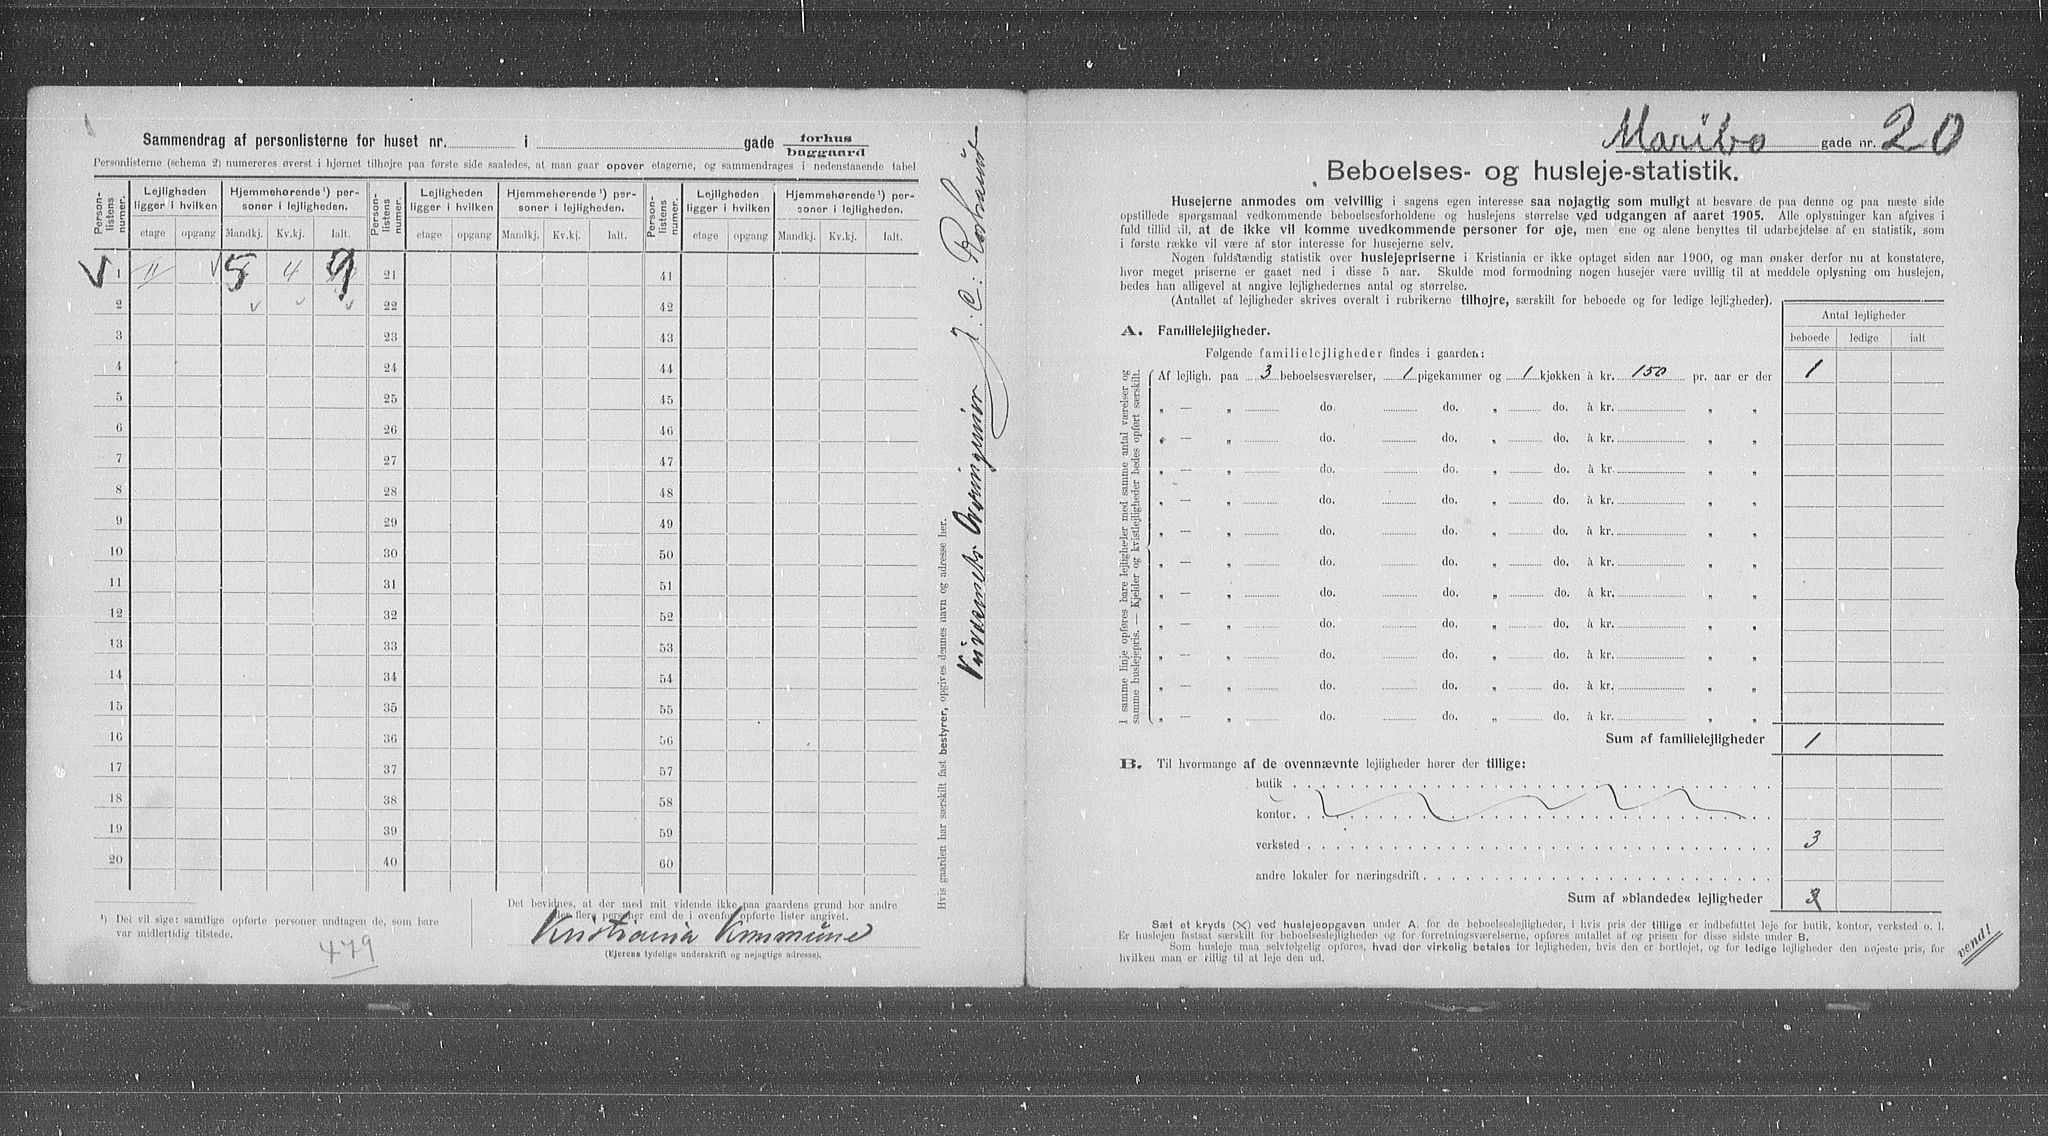 Sammendrag af personlisterne for huset nr. i gade forhus
baggaard
Personlisterne (schema 2) numereres øverst i hjørnet tilhøjre paa første side saaledes, at man gaar opover etagerne, og sammendrages i nedenstaaende tabel
Person-listens nummer. Lejligheden ligger i hvilken Hjemmehørende ¹) personer i lejligheden. Person-listens nummer. Lejligheden ligger i hvilken Hjemmehørende ¹) personer i lejligheden. Person-listens nummer. Lejligheden ligger i hvilken Hjemmehørende ¹) personer i lejligheden.
etage opgang Mandkj. Kv.kj. Ialt. etage opgang Mandkj. Kv.kj. Ialt. etage opgang Mandkj. Kv.kj. Ialt.
V 1 5 4 9 21 41
2 22 42
3 23 43
4 24 44
5 25 45
6 26 46
7 27 47
8 28 48
9 29 49
10 30 50
11 31 51
12 32 52
13 33 53
14 34 54
15 35 55
16 36 56
17 37 57
18 38 58
19 39 59
20 40 60
¹) Det vil sige: samtlige opførte personer undtagen de, som bare
var midlertidig tilstede.
479
Det bevidnes, at der med mit vidende ikke paa gaardens grund bor andre
eller flere personer end de i ovenfor opførte lister angivet.
Kristiania Kommune
(Ejerens tydelige underskrift og nøjagtige adresse).
Hvis gaarden har særskilt fast bestyrer, opgives dennes navn og adresse her.
J. C.
Maribo gade nr. 20
Beboelses- og husleje-statistik.
Husejerne anmodes om velvillig i sagens egen interesse saa nøjagtig som muligt at besvare de paa denne og paa næste side
opstillede spørgsmaal vedkommende beboelsesforholdene og huslejens størrelse ved udgangen af aaret 1905. Alle oplysninger kan afgives i
fuld tillid til, at de ikke vil komme uvedkommende personer for øje, men ene og alene benyttes til udarbejdelse af en statistik, som
i første række vil være af stor interesse for husejerne selv.
Nogen fuldstændig statistik over huslejepriserne i Kristiania er ikke optaget siden aar 1900, og man ønsker derfor nu at konstatere,
hvor meget priserne er gaaet ned i disse 5 aar. Skulde mod formodning nogen husejer være uvillig til at meddele oplysning om huslejen,
bedes han alligevel at angive lejlighedernes antal og størrelse.
(Antallet af lejligheder skrives overalt i rubrikerne tilhøjre, særskilt for beboede og for ledige lejligheder).
Antal lejligheder
beboede ledige ialt
A. Familielejligheder.
Følgende familielejligheder findes i gaarden:
I samme linje opføres bare lejligheder med samme antal værelser og
samme huslejepris. — Kjelder og kvistlejligheder bedes opført særskilt.
Af lejligh. paa 3 beboelsesværelser, 1 pigekammer og 1 kjøkken à kr. 150 pr. aar er der 1
„ — „ do. do. „ do. à kr. „ „
„ — „ do. do. „ do. à kr. „ „
„ — „ do. do. „ do. à kr. „ „
„ — „ do. do. „ do. à kr. „ „
„ — „ do. do. „ do. à kr. „ „
„ — „ do. do. „ do. à kr. „ „
„ — „ do. do. „ do. à kr. „ „
„ — „ do. do. „ do. à kr. „ „
„ — „ do. do. „ do. à kr. „ „
„ — „ do. do. „ do. à kr. „ „
„ — „ do. do. „ do. à kr. „ „
Sum af familielejligheder 1
B. Til hvormange af de ovennævnte lejligheder hører der tillige:
butik
kontor
verksted 3
andre lokaler for næringsdrift
Sum af »blandede« lejligheder 3
Sæt et kryds (X) ved huslejeopgaven under A. for de beboelseslejligheder, i hvis pris der tillige er indbefattet leje for butik, kontor, verksted o. l.
Er huslejen fastsat særskilt for beboelseslejligheder og for forretningsværelserne, opføres antallet af og prisen for disse sidste under B.
Som husleje maa selvfølgelig opføres, hvad der virkelig betales for lejligheden, hvis den er bortlejet, og for ledige lejligheder den nøjeste pris, for
hvilken man er villig til at leje den ud.
vend!